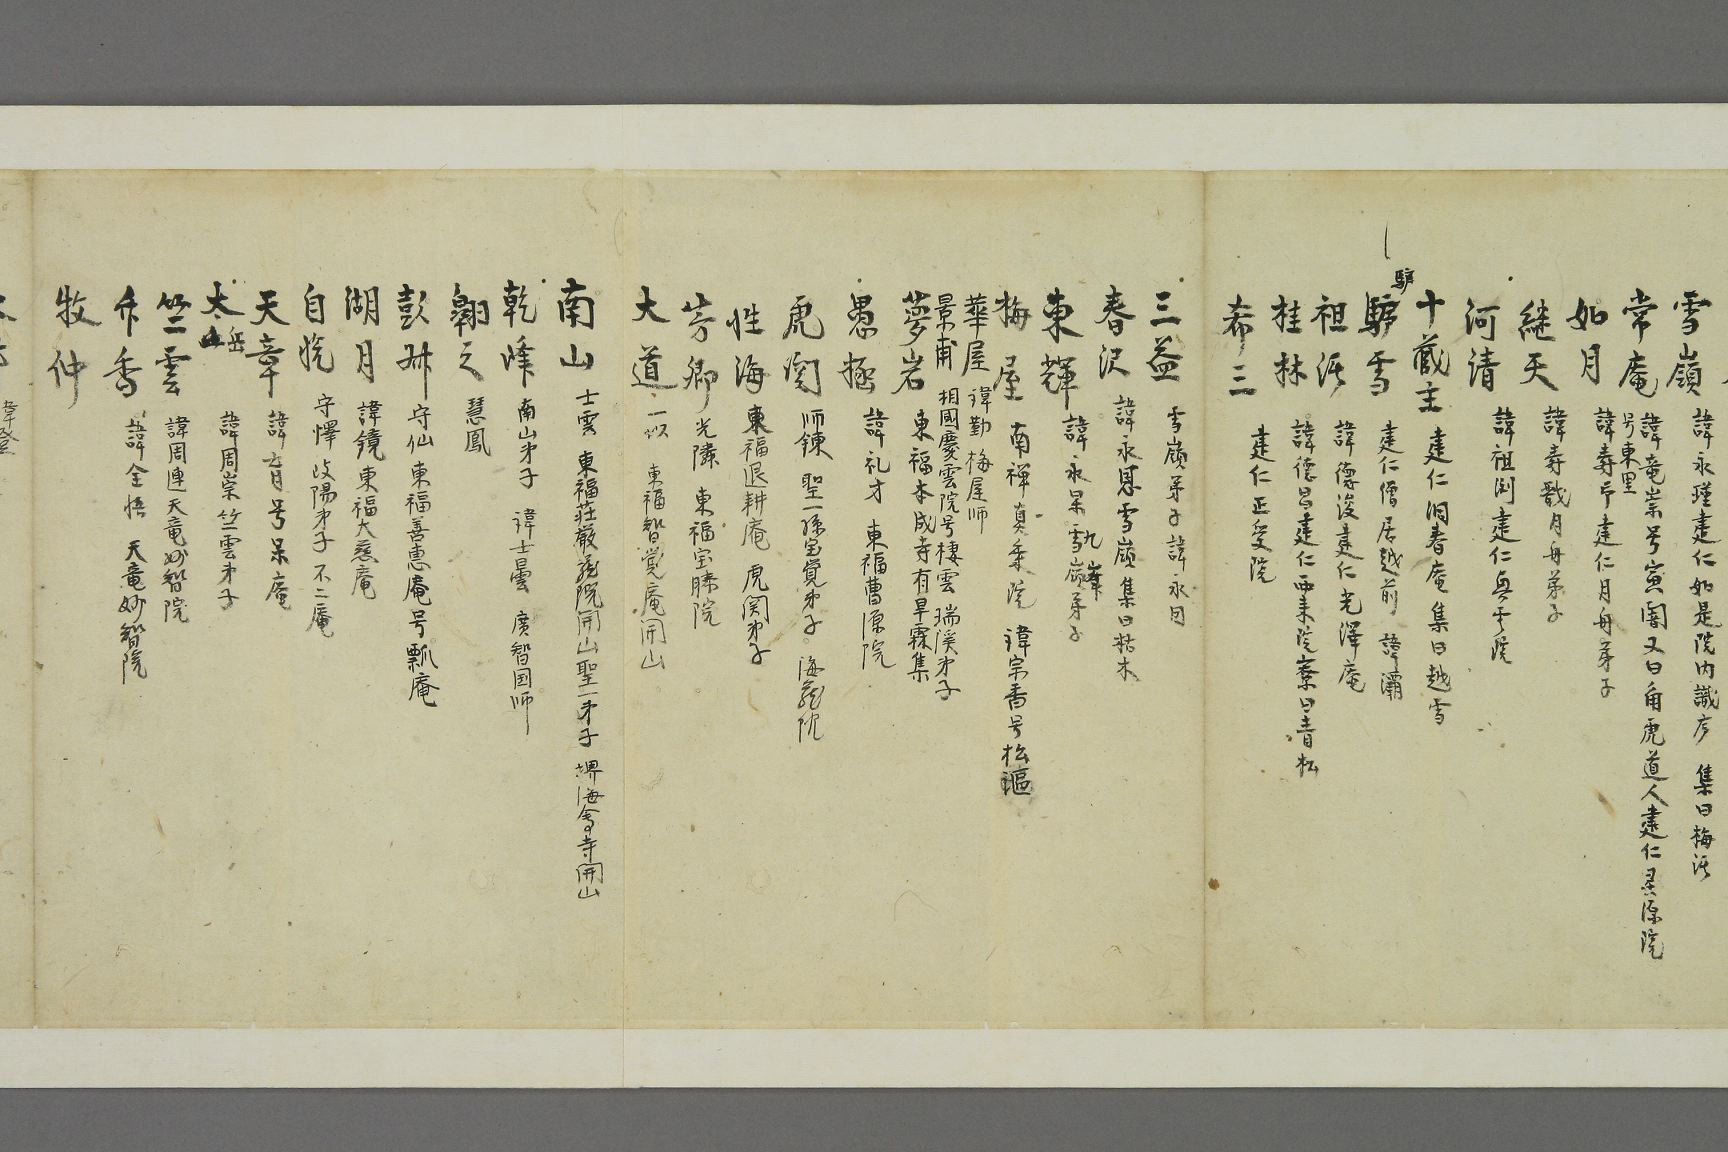 雪嶺 諱永瑾建仁如是院内識庐 集曰梅渓
常庵 諱竜崇号寅闇又曰角虎道人建仁霊源院
号東里
如月 諱寿印建仁月舟弟子
継天 諱寿戩月舟弟子
河清 諱祖瀏建仁
十蔵主 建仁洞春庵集曰越雪
驢雪 建仁僧居越前 諱灞
驢
祖渓 諱德濬建仁光澤庵
桂林 諱德昌建仁西来院寮曰青松
希三 建仁正受院
三益 雪嶺弟子諱永因
春沢 諱永恩雪嶺集曰枯木
東輝 諱永杲雪嶺弟子
九峯
梅屋 南禅真乗院 諱宗香号松漚
華屋 諱勤梅屋師
景甫 相國慶雲院号棲雲 瑞渓弟子
夢岩 東福本成寺有旱霖集
愚極 諱礼才 東福曹源院
虎関 師錬 聖一孫宝覚弟子 海蔵院
性海 東福退耕庵 虎関弟子
芳卿 光隣 東福宝勝院
大道 一以 東福智覚庵開山
南山 士雲 東福荘厳蔵院開山聖一弟子 堺海會寺開山
乾峰 南山弟子 諱士曇 廣智国師
翱之 慧鳳
彭叔 守仙 東福善恵庵号瓢庵
湖月 諱鏡東福大慈庵
自悦 守懌 岐陽弟子不二庵
天章 諱 月号呆庵
太岳 諱周崇竺雲弟子
竺雲 諱周連天竜妙智院
牟香 諱全悟 天竜妙智院
牧仲